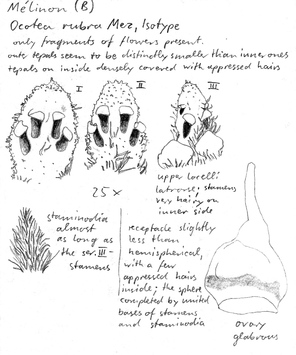 Mélinon (B)
Ocotea rubra Mez, Isotype
only fragments of flowers present.
outer tepals seem to be distinctly smaller than inner ones
tepals on inside densely covered with appressed hairs
I
II
III
25 x
upper locelli
latrorse; stamens
very hairy on
inner side
staminodia
almost
as long as
the ser. III
stamens
receptacle slightly
less than
hemispherical,
with a few
appressed hairs
inside; the sphere
completed by united
bases of stamens
and staminodia
ovary
glabrous